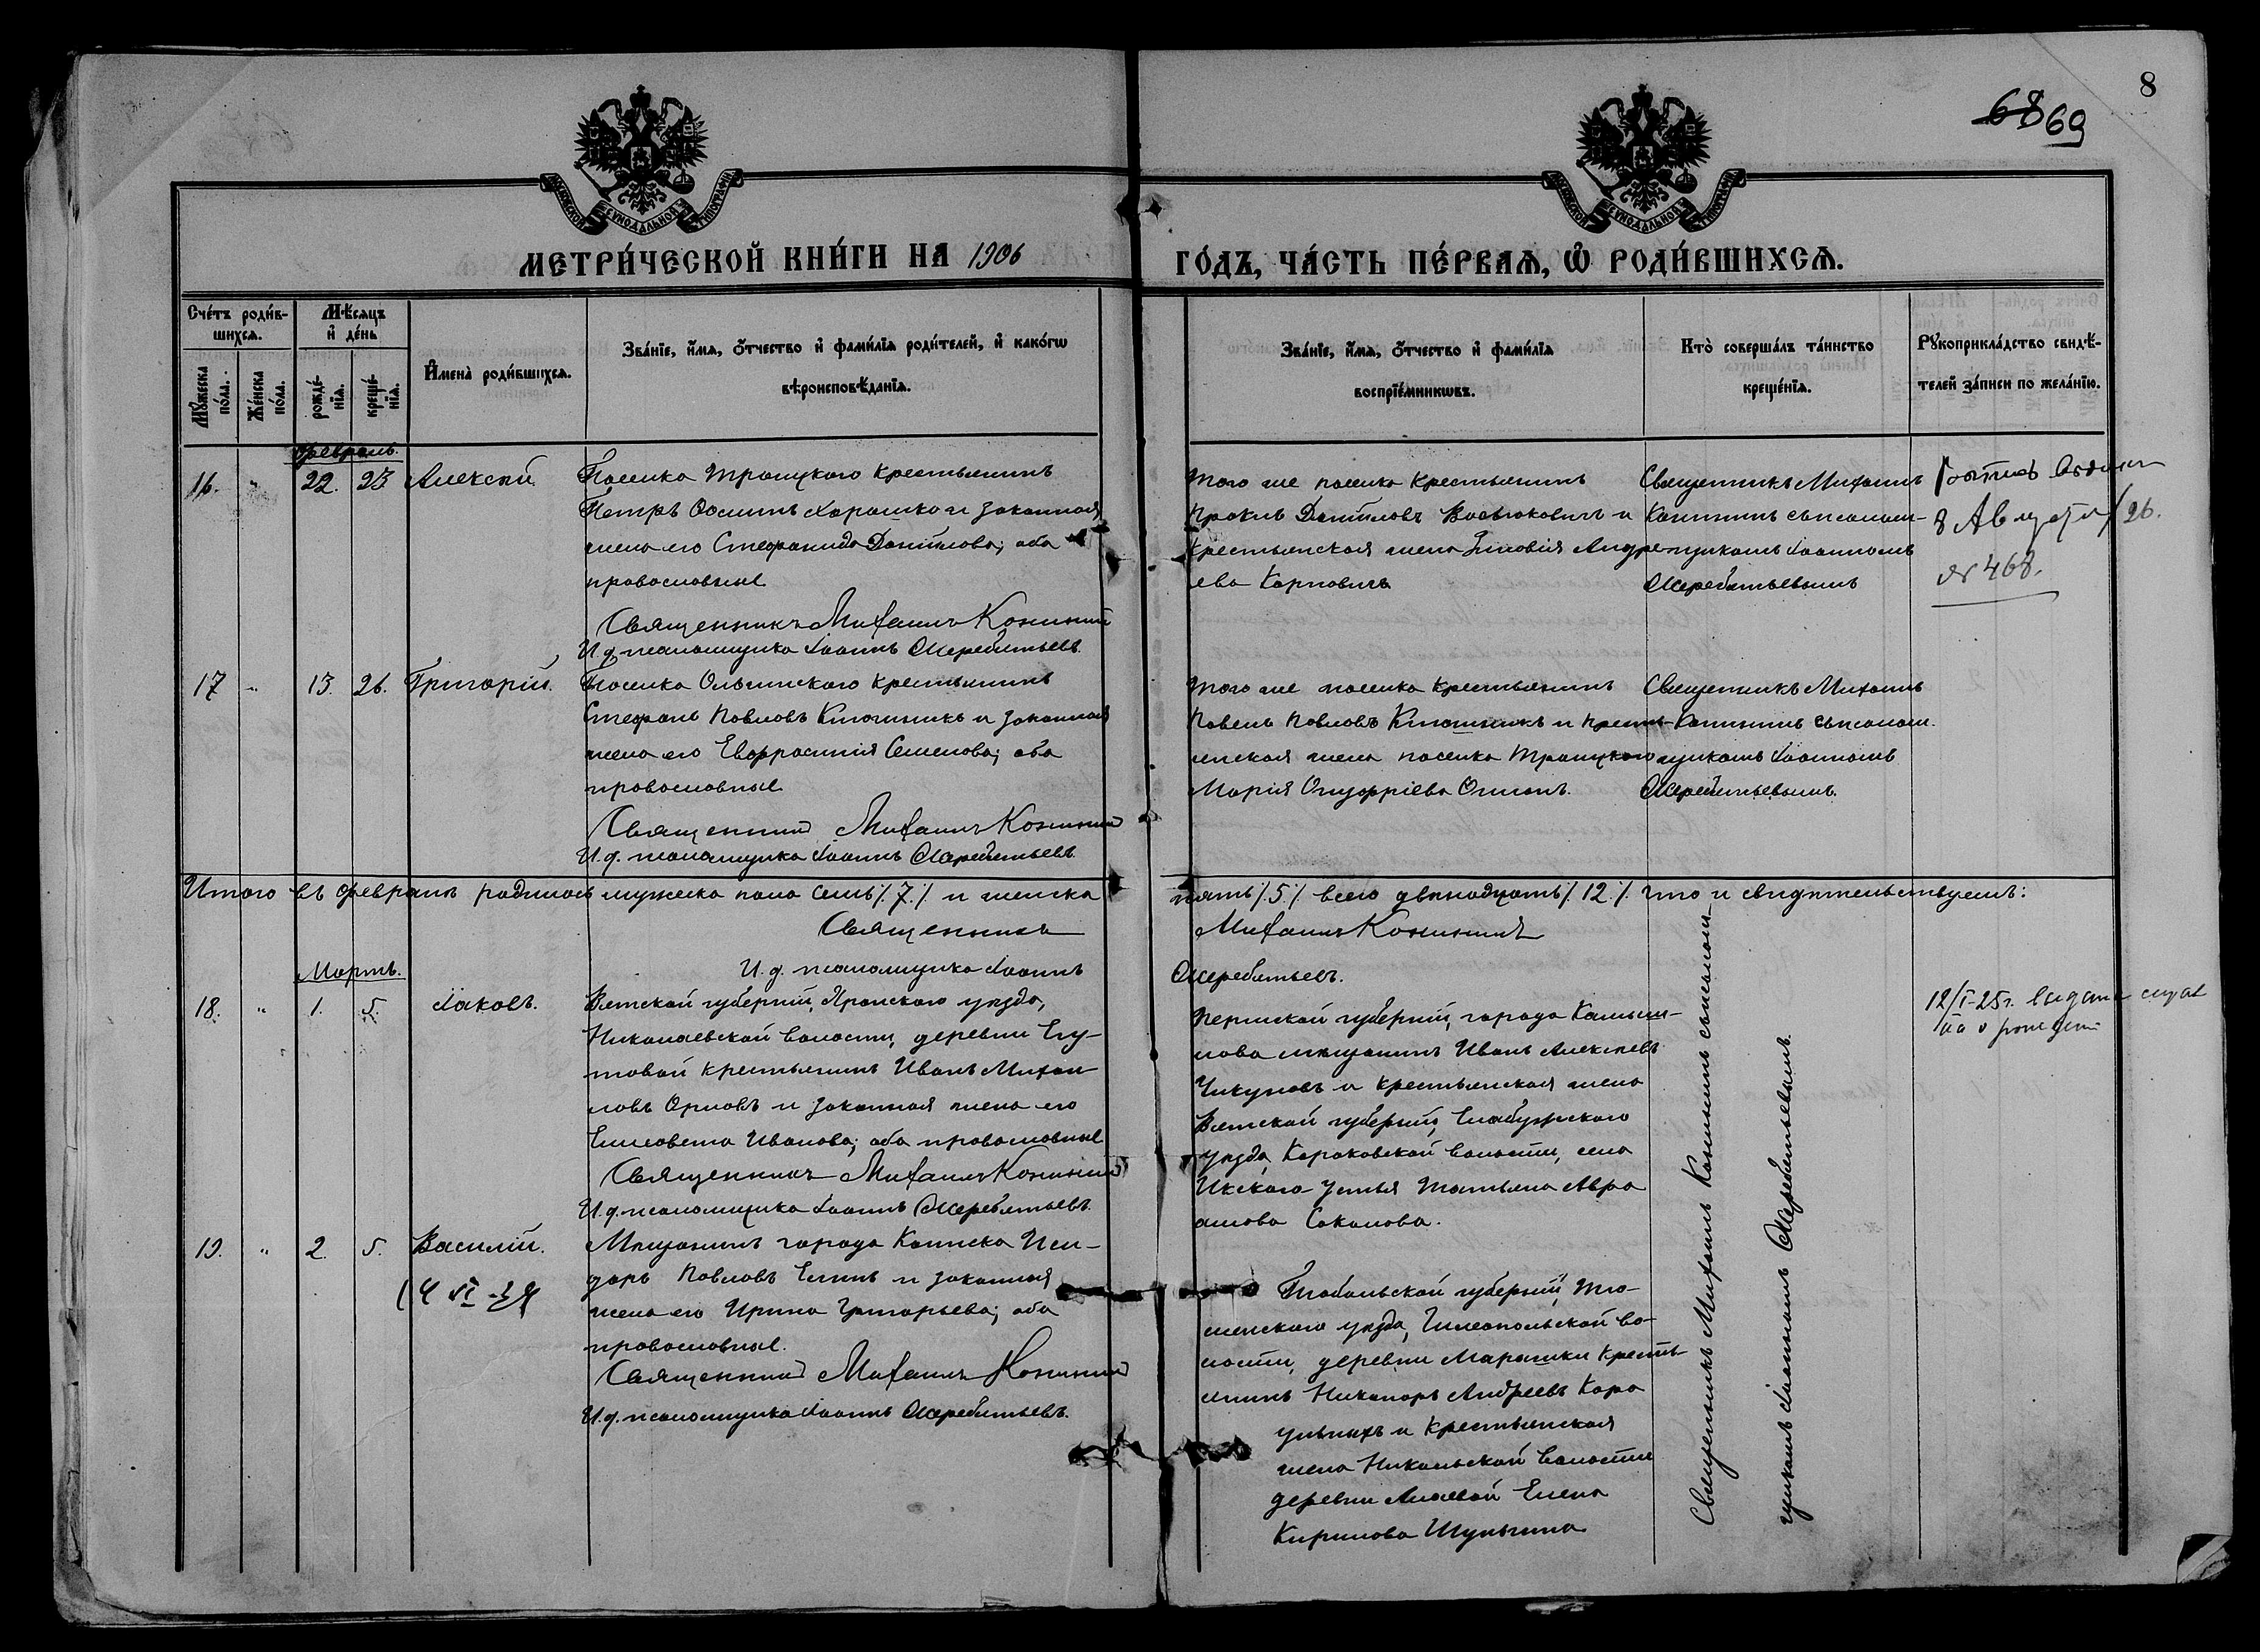 8
68 69
МОСКОВСКОЙ СѴНОДАЛЬНОЙ ТИПОГРАФІИ
МОСКОВСКОЙ СѴНОДАЛЬНОЙ ТИПОГРАФІИ
МЕТРИ́ЧЕСКОЙ КНИ́ГИ НА 1906 ГО́ДЪ, ЧА́СТЬ ПЕ́РВАѦ, Ѡ РОДИ́ВШИХСѦ.
Сче́тъ роди́в-
шихсѧ.
Мꙋ́жеска
по́ла.
Же́нска
по́ла.
Мѣ́сѧцъ
и҆ де́нь
рожде́-
нїѧ.
креще́-
нїѧ.
И҆мена̀ роди́вшихсѧ.
Зва́нїе, и҆́мѧ, ѻ҆́тчество и҆ фамѝлїѧ роди́телей, и҆ како́гѡ
вѣроисповѣ́данїѧ.
Зва́нїе, и҆́мѧ, ѻ҆́тчество и҆ фамѝлїѧ
воспрїе́мникѡвъ.
Кто̀ соверша́лъ та́инство
креще́нїѧ.
Рꙋкоприкла́дство свидѣ́-
телей за́писи по жела́нїю.
Февраль.
16. " 22. 23. Алексѣй
Поселка Троицкаго крестьянинъ
Петръ Осиинъ Харошко и законная
жена его Стефанида Данилова; оба
православные
Священникъ Михаилъ Конининъ
И. д. псаломщика Іоаннъ Жеребятьевъ.
Того же поселка крестьянинъ
Проклъ Даниловъ Васьюковичъ и
крестьянская жена Зиновія Андре-
ева Карповичъ
Священникъ Михаилъ
Конининъ съ псалом-
щикомъ Іоанномъ
Жеребятьевымъ
8 Августа/26.
№ 468.
17 " 13. 26. Григорій.
Поселка Ольгинскаго крестьянинъ
Стефанъ Павловъ Ключникъ и законная
жена его Евфросинія Семенова; оба
православные
Священникъ Михаилъ Конининъ
И. д. псаломщика Іоаннъ Жеребятьевъ.
Того же поселка крестьянинъ
Павелъ Павловъ Ключникъ и кресть-
янская жена поселка Троицкаго
Марія Онуфріева
Священникъ Михаилъ
Конининъ съ псалом-
щикомъ Іоанномъ
Жеребятьевымъ.
Итого въ февралѣ родилось мужеска пола семь /.7./ и женска пять /.5./ всего двѣнадцать /.12./. Что и свидѣтельствуемъ:
Священникъ Михаилъ Конининъ
И. д. псаломщика Іоаннъ Жеребятьевъ.
Мартъ.
18. " 1. 5. Іаковъ.
Вятской губерніи, Яранскаго уѣзда,
Николаевской волости, деревни
крестьянинъ Иванъ Михаи-
ловъ Орловъ и законная жена его
Елисавета Иванова; оба православные
Священникъ Михаилъ Конининъ
И. д. псаломщика Іоаннъ Жеребятьевъ.
Пермской губерніи, города Камыш-
лова мѣщанинъ Иванъ Алексѣевъ
Чикуновъ и крестьянская жена
Вятской губерніи, Елабужскаго
уѣзда, Кураковской волости, села
Икскаго Устья Татьяна Авра
амова Соколова.
Священникъ Михаилъ Конининъ съ псалом-
щикомъ Іоанномъ Жеребятьевымъ.
12/I-25г. выдана
19. " 2. 5. Василій.
Мѣщанинъ города Каинска Иси-
доръ Павловъ Елинъ и законная
жена его Ирина Григорьева; оба
православные.
Священникъ Михаилъ Конининъ
И. д. псаломщика Іоаннъ Жеребятьевъ.
Тобольской губерніи, Тю-
менскаго уѣзда, во-
лости, деревни Марашки кресть-
янинъ Никаноръ Андреевъ Кара
ульныхъ и крестьянская
жена Никольской волости
деревни Елена
Кирилова Шульгина